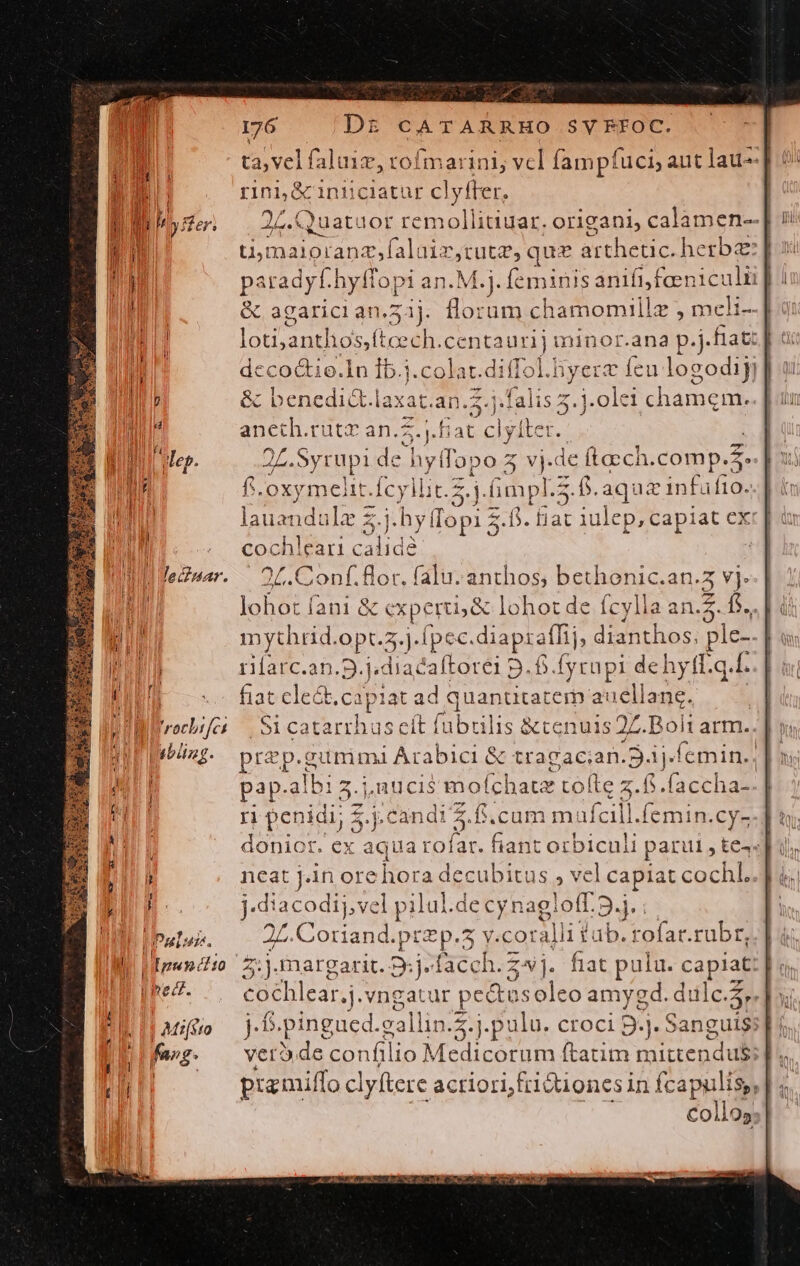 176 DE CATARRHO SVFFOC.
ta, vel ſaluiæ, roſmarini, vel ſampſuci, aut lau-
rini, & iniiciatur clyſter.
yſter.
℞. Quatuor remollitiuar. origani, calamen-
ti, maioranæ, ſaluiæ, rutæ, quæ arthetic. herbæ
paradyſ. hyſſopi an. M. j. ſeminis aniſi, fœniculi
& agarici an. ʒij. florum chamomillæ, meli-
loti, anthos, ſtœch. centaurij minor. ana p. j. fiat
decoctio. In ℔. j. colat. diſſol. hyeræ ſeu logodij
& benedict. laxat. an. ℥. j. ſalis ʒ. j. olei chamem.
aneth. rutæ an. ℥. j. fiat clyſter.
lep.
℞. Syrupi de hyſſopo ʒ vj. de ſtœch. comp. ℥.
ß. oxymelit. ſcyllit. ℥. j. ſimpl. ℥. ß. aquæ infuſio.
lauandulæ ℥. j. hyſſopi ℥. ß. fiat iulep, capiat ex
cochleari calidè
lectuar.
℞. Conſ. flor. ſalu. anthos, bethonic. an. ʒ vj.
lohot ſani & experti, & lohot de ſcylla an. ℥. ß.
mythrid. opt. ʒ. j. ſpec. diapraſſij, dianthos, ple-
riſarc. an. ℈. j. diacaſtorei ℈. ß. ſyrupi de hyſſ. q. ſ.
fiat elect. capiat ad quantitatem auellane.
rochiſci
bling.
Si catarrhus eſt ſubtilis & tenuis ℞. Boli arm.
præp. gummi Arabici & tragacan. ℈. ij. ſemin.
pap. albi ʒ. j. nucis moſchatæ toſte ʒ. ß. ſaccha-
ri penidij ℥. j. candi ℥. ß. cum muſcill. ſemin. cy-
donior. ex aqua roſar. fiant orbiculi parui, te-
neat j. in ore hora decubitus, vel capiat cochl.
j. diacodij, vel pilul. de cynagloſſ. ℈. j.
Puluis.
℞. Coriand. præp. ʒ v. coralli rub. roſar. rubr.
punctio
pect.
ʒ. j. margarit. ℈. j. ſacch. ℥ vj. fiat pulu. capiat
cochlear. j. vngatur pectus oleo amygd. dulc. ℥.
Miſsio
ſang.
j. ß. pingued. gallin. ℥. j. pulu. croci ℈. j. Sanguis
verò de conſilio Medicorum ſtatim mittendus
præmiſſo clyſtere acriori, frictiones in ſcapulis,
collo,